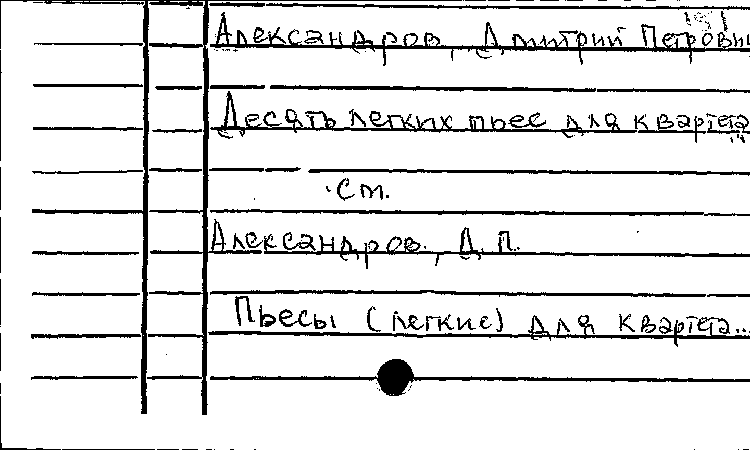 Александров, Дмитрий Петрович
Десять легких пьес для квартета...
см.
Александров, Д. П.
Пьесы (легкие) для квартета...